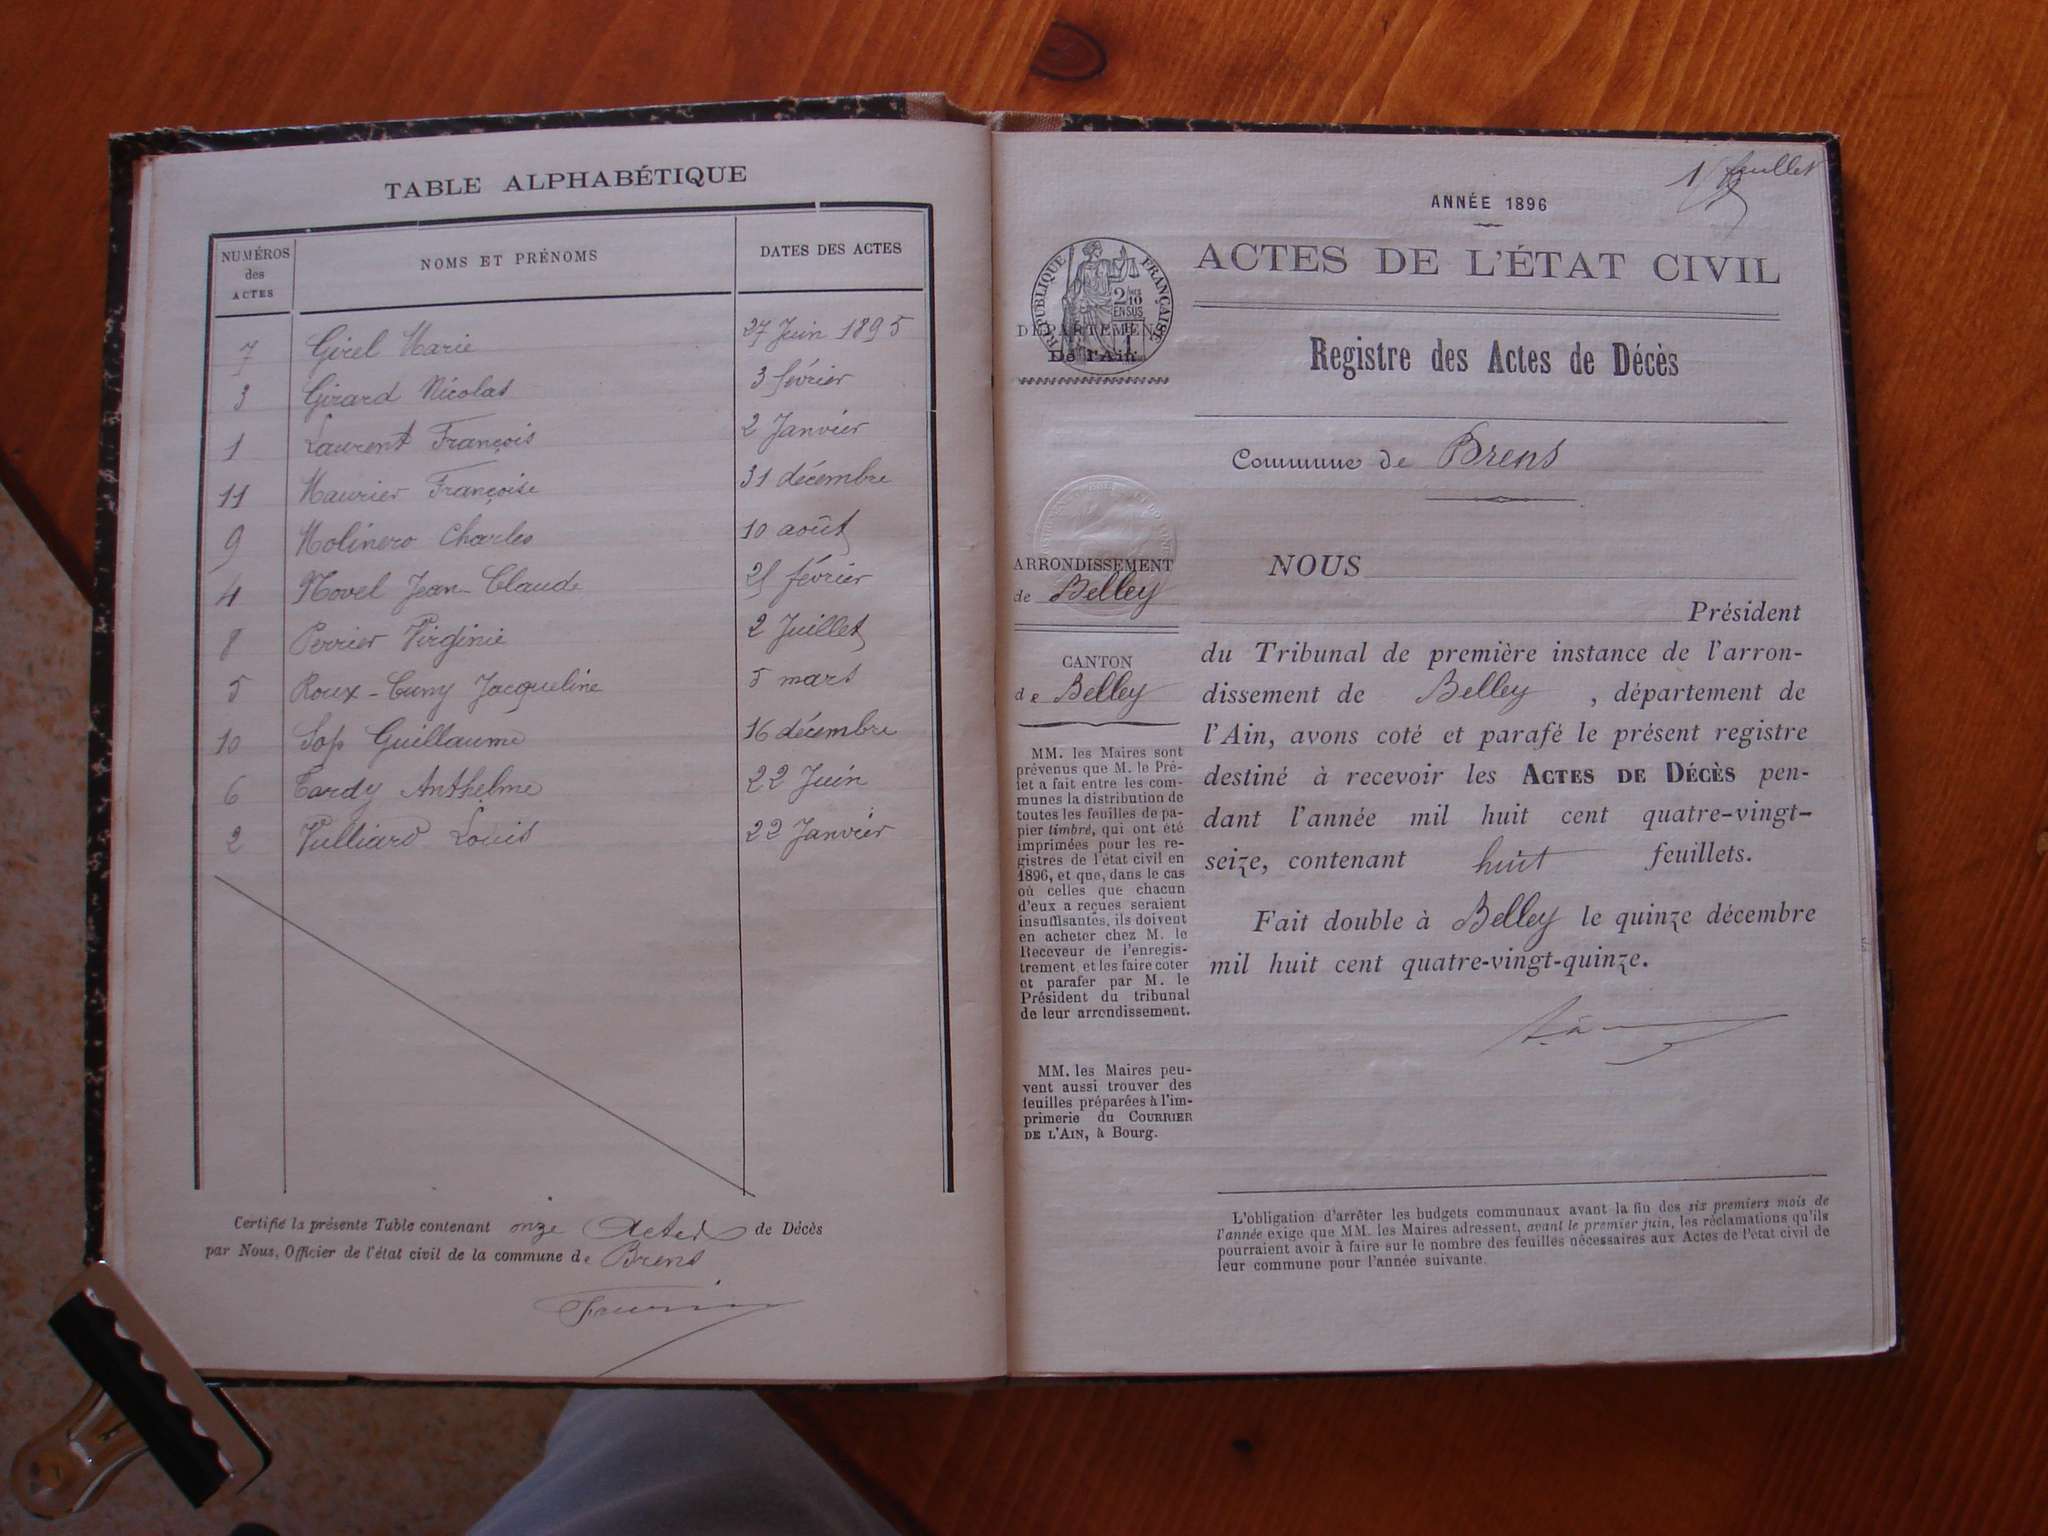 TABLE ALPHABÉTIQUE
NUMÉROS des ACTES
NOMS ET PRÉNOMS
DATES DES ACTES
7 Girel Marie 27 Juin 1895
3 Girard Nicolas 3 février
1 Laurent François 2 Janvier
11 Maurier Françoise 31 décembre
9 Molinero Charles 10 août
4 Novel Jean-Claude 25 février
8 Perrier Virginie 2 Juillet
5 Roux-Cuny Jacqueline 5 mars
10 Sop Guillaume 16 décembre
6 Tardy Anthelme 22 Juin
2 Vulliard Louis 22 Janvier
Certifié la présente Table contenant onze Actes de Décès
par Nous, Officier de l'état civil de la commune de Brens
1er feuillet
ANNÉE 1896
ACTES DE L'ÉTAT CIVIL
RÉPUBLIQUE FRANÇAISE
2 10 EN SUS
DÉPARTEMENT
De l'Ain
Registre des Actes de Décès
Commune de Brens
ARRONDISSEMENT
de Belley
CANTON
de Belley
MM. les Maires sont
prévenus que M. le Pré-
fet a fait entre les com-
munes la distribution de
toutes les feuilles de pa-
pier timbré, qui ont été
imprimées pour les re-
gistres de l'état civil en
1896, et que, dans le cas
où celles que chacun
d'eux a reçues seraient
insuffisantes, ils doivent
en acheter chez M. le
Receveur de l'enregis-
trement et les faire coter
et parafer par M. le
Président du tribunal
de leur arrondissement.
MM. les Maires peu-
vent aussi trouver des
feuilles préparées à l'im-
primerie du COURRIER
DE L'AIN, à Bourg.
NOUS
Président
du Tribunal de première instance de l'arron-
dissement de Belley, département de
l'Ain, avons coté et parafé le présent registre
destiné à recevoir les ACTES DE DÉCÈS pen-
dant l'année mil huit cent quatre-vingt-
seize, contenant huit feuillets.
Fait double à Belley le quinze décembre
mil huit cent quatre-vingt-quinze.
L'obligation d'arrêter les budgets communaux avant la fin des six premiers mois de
l'année exige que MM. les Maires adressent, avant le premier juin, les réclamations qu'ils
pourraient avoir à faire sur le nombre des feuilles nécessaires aux Actes de l'état civil de
leur commune pour l'année suivante.